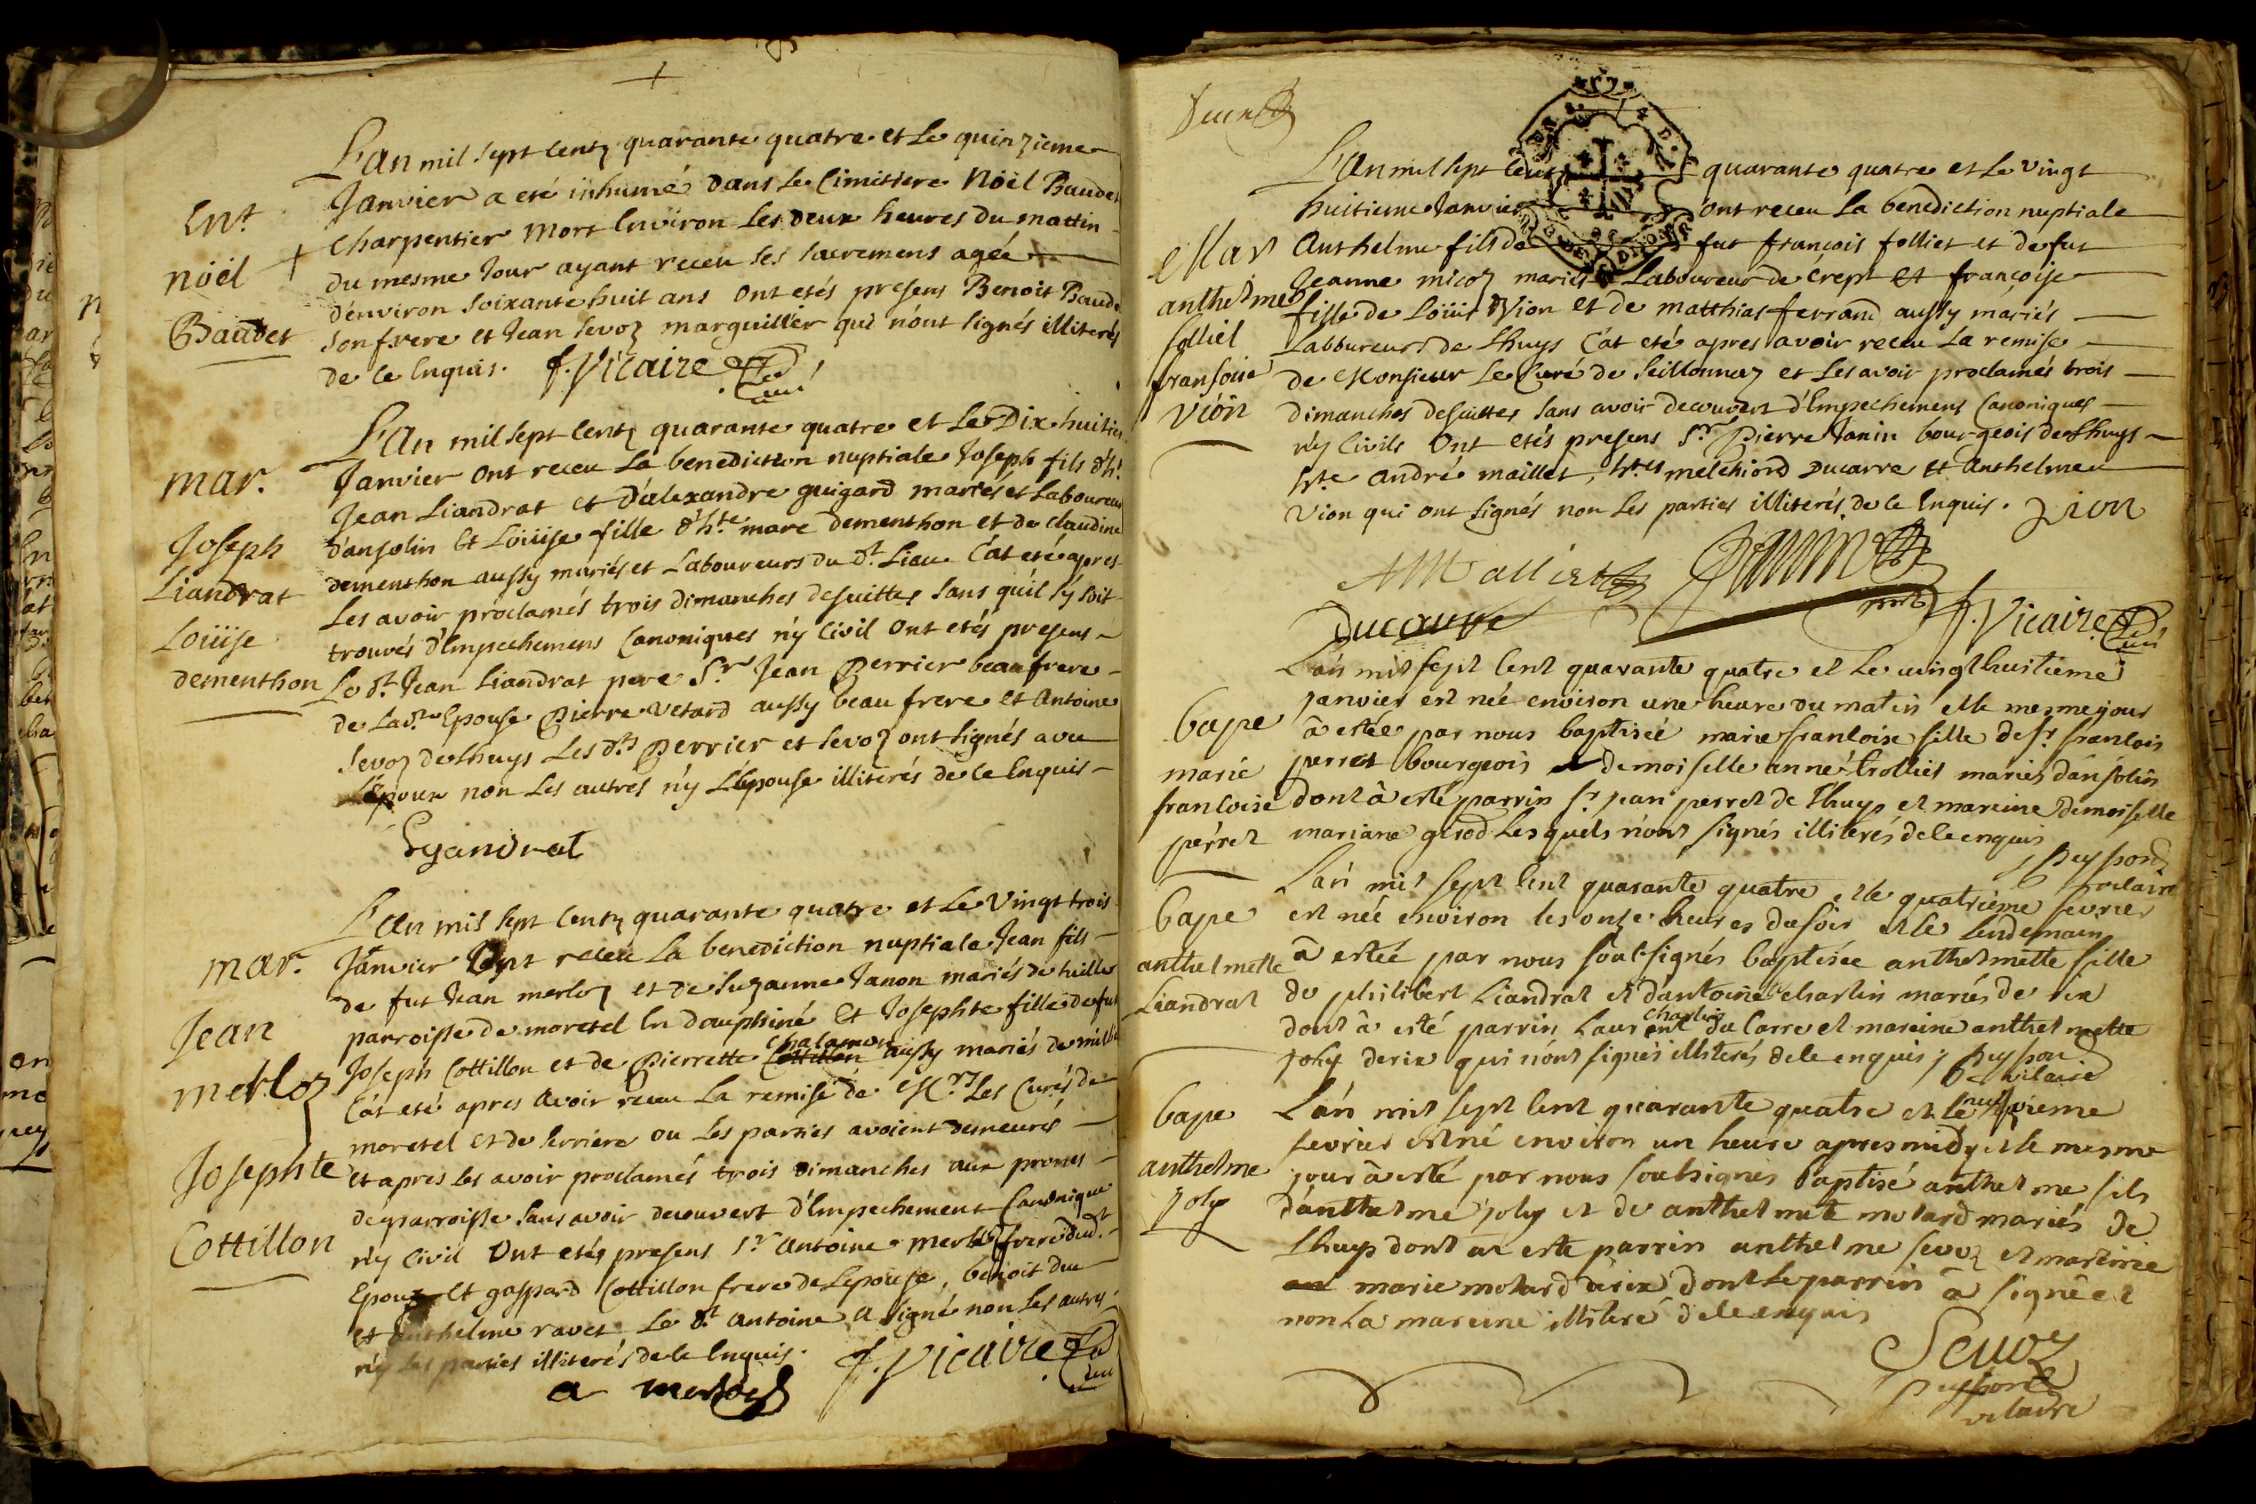 L'an mil sept centz quarante quatre et le quinzieme
Janvier a eté inhumé dans le Cimitiere Nöel Baudet
Charpentier mort Environ les deux heures du mattin
du mesme Jour ayant receu ses sacremens agée
d'environ soixante huit ans ont etés presens Benoit Baudet
son frere et Jean Sevoz marguillier qui n'ont signés illiterés
de ce Enquis. f. Vicaire Curé
Ent
nöel
Baudet
L'An mil sept Centz quarante quatre et Le Dix huitie
Janvier ont receu La benediction nuptiale Joseph fils d'h.
Jean Liandrat et d'alexandre guigard mariés et Laboureur
d'ansolin Et Loüise fille d'h.te marc dementhon et de claudine
dementhon aussy mariés et Laboureurs du d.t Lieu C'at eté apres
Les avoir proclamés trois dimanches desuittes sans qu'il s'y soit
trouvés d'Empechemens Canoniques n'y Civil Ont etés presens
Le d.t Jean Liandrat pere S.r Jean Perrier beau frere
de Lad.te Epouse Pierre Vetard aussy beau frere et Antoine
Sevoz de Lhuys Les d.ts Perrier et Sevoz ont signés avec
L'Epoux non Les autres n'y L'épouse illiterés de ce Enquis
Lyandrat
mar.
Joseph
Liandrat
Loüise
dementhon
L'an mil sept Centz quarante quatre et Le Vingt trois
Janvier Ont receu La benediction nuptiale Jean fils
de fut Jean merloz et de Suzanne Janon mariés de huilles
parroisse de moretel En dauphiné Et Josephte fille de fut
Joseph Cottillon et de Pierrette Cottillon Chalamon aussy mariés de
C'at eté apres Avoir receu La remise de M.rs Les Curés de
moretel et de Serriere ou Les parties avoient demeurés
et apres les avoir proclamés trois dimanches aux prones
de parroisse sans avoir decouvert d'Empechement Canonique
n'y Civil Ont etés presens S.r Antoine merloz frere dud.t
Epoux Et gaspard Cottillon frere de L'epouse, benoit duc
et Anthelme ravet Le d.t Antoine A signé non Les autres
n'y Les parties illiterés de Ce Enquis. f. Vicaire Curé
a merloz
mar.
Jean
merloz
Josephte
Cottillon
L'An mil sept Centz quarante quatre et Le Vingt
huitieme Janvier Ont receu La benediction nuptiale
Anthelme fils de fut françois folliet et de fut
Jeanne micoz mariés Laboureur de Crept Et françoise
fille de Loüis Vion et de Matthias ferrand aussy mariés
Laboureurs de Lhuys C'at eté apres avoir receu La remise
de Monsieur Le Curé de Seillonnaz et Les avoir proclamés trois
dimanches desuittes sans avoir decouvert d'Empechemens Canoniques
n'y Civils Ont etés presens S.r Pierre Janin bourgeois de Lhuys
h.te André maillet, h.tes melchiord Ducarre Et Anthelme
Vion qui ont signés non Les parties illiterés de Ce Enquis. Vion
AMallier Janin
Ducarre f. Vicaire Curé
Mar
anthelme
folliet
fransoise
Viön
L'an mil sept Cent quarante quatre et Le vingt huitieme
janvier est née environ une heure du matin et le mesme jour
à estée par nous baptisée marie francoise fille de s.r francois
perret bourgeois et demoiselle anne trolliet mariés d'ansolin
dont à esté parrin s.r jean perret de Lhuys et mareine Demoiselle
mariane girod Lesquels n'ont signés illiterés de ce enquis
Peysson vicaire
bape
marie
francoise
perret
L'an mil sept cent quarante quatre et le quatrieme fevrier
est née environ les onze heures du soir et le lendemain
à estée par nous soubsignés baptisée anthelmette fille
de philibert Liandrat et d'antoine charlin mariés de rix
dont à esté parrin Laurent Charlin du Carre et mareine anthelmette
joly de rix qui n'ont signés illiterés de ce enquis Peysson vicaire
bape
anthelmette
Liandrat
L'an mil sept cent quarante quatre et le neufvieme
fevrier est né environ un heure apres midy et le mesme
jour à esté par nous soubsignes baptisé anthelme fils
d'anthelme joly et de anthelmete motard mariés de
Lhuys dont a esté parrin anthelme sevoz et mareine
marie motard de rix dont le parrin à signé et
non La mareine illiteré de ce enquis
Sevoz
Peysson
vicaire
bape
anthelme
joly